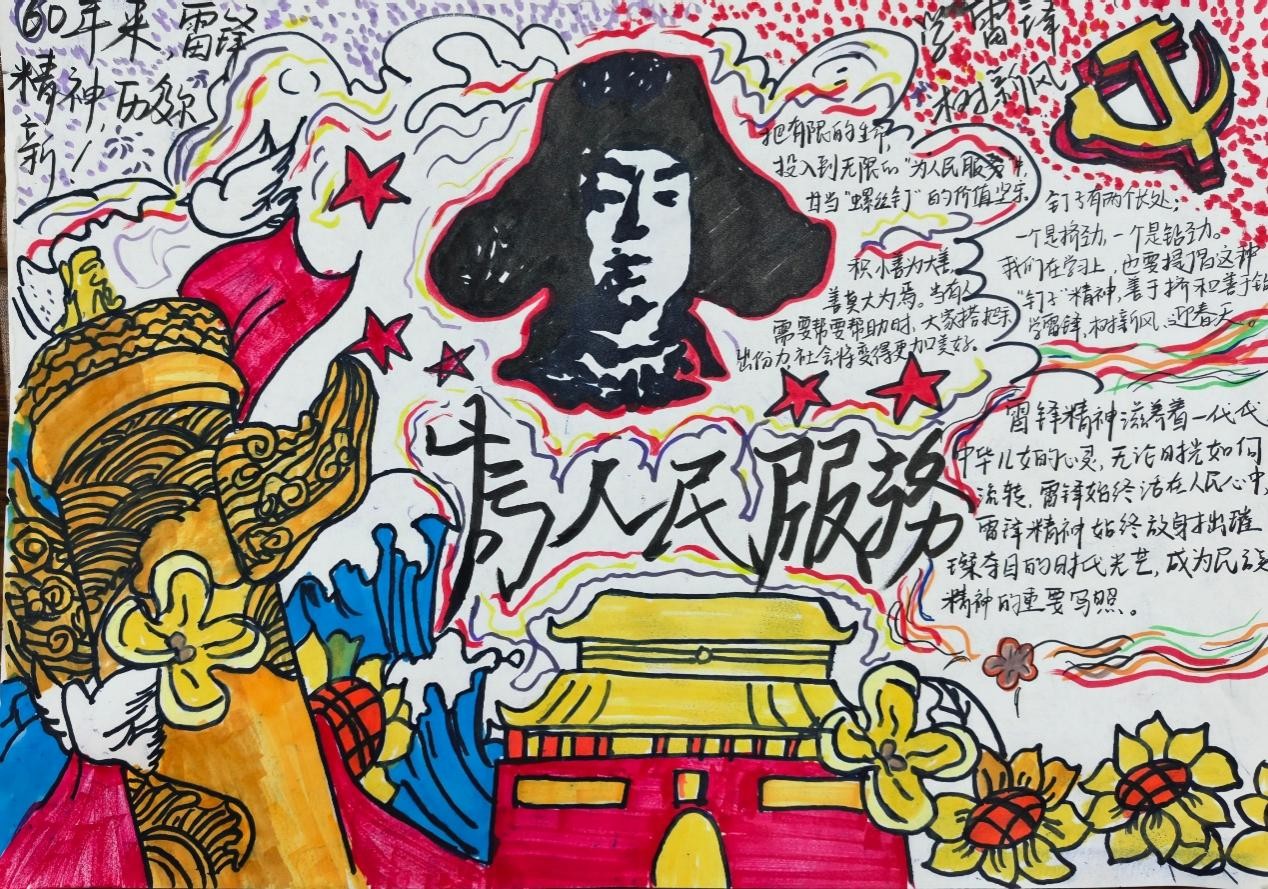 60年来,雷锋
精神,历弥
新!
学雷锋
树新风
把有限的生命,
投入到无限的"为人民服务"中,
甘当"螺丝钉"的价值坚守.
钉子有两个长处;
一个是挤劲,一个是钻劲。
我们在学习上,也要提倡这种
"钉子"精神,善于挤和善于钻
学雷锋,树新风、迎春天。
积小善为大善,
善莫大为焉。当有人
需要帮要帮助时,大家搭把手
出份力,社会将变得更加美好.
為人民服務
雷锋精神滋养着一代代
中华儿女的心灵,无论时光如何
流转,雷锋始终活在人民心中,
雷锋精神始终放射出璀
璨夺目的时代光芒,成为民族
精神的重要写照。